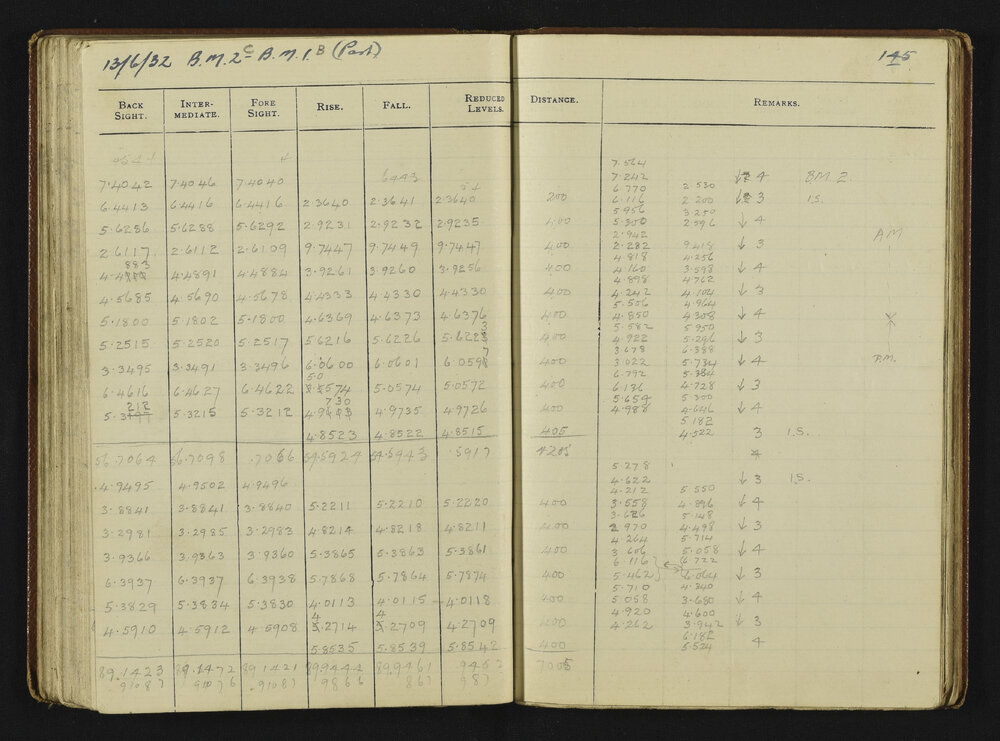 13/6/32 B.M.2ᶜ B.M.1ᴮ (Part)
145
BACK SIGHT. INTER-MEDIATE. FORE SIGHT. RISE. FALL. REDUCED LEVELS. DISTANCE. REMARKS.
7.564
7.4042 7.4046 7.4040 6443 7.242 ↓ 4 B.M. 2.
6.770 2.530
6.4413 6.4416 6.4416 2.3640 2.3641 2.3640 200 6.116 2.200 ↓ 3 I.S.
5.956 3.250
5.6286 5.6288 5.6292 2.9231 2.9232 2.9235 400 5.300 2.596 ↓ 4
2.942
A.M
2.6117 2.6112 2.6109 9.7447 9.7449 9.7447 400 2.282 9.418 ↓ 3
883 4.818 4.256
4.4 4.4891 4.4884 3.9261 3.9260 3.9256 400 4.160 3.598 ↓ 4
4.898 4.762
4.5685 4.5690 4.5678 4.4333 4.4330 4.4330 400 4.242 4.104 ↓ 3
5.506 4.964
5.1800 5.1802 5.1800 4.6369 4.6373 4.6376 400 4.850 4.308 ↓ 4
3 5.582 5.950
5.2515 5.2520 5.2517 5.6216 5.6226 5.622 400 4.922 5.296 ↓ 3
7 3.678 6.388
3.3495 3.3491 3.3496 6.0600 6.0601 6.059 400 3.022 5.734 ↓ 4 P.M.
5.0 6.792 5.384
6.4616 6.4627 6.4622 5574 5.0574 5.0572 400 6.136 4.728 ↓ 3
212 730 5.654 5.300
5.3 5.3215 5.3212 4.9 4.9735 4.9726 400 4.988 4.646 ↓ 4
5.182
4.8523 4.8522 4.8515 405 4.522 3 I.S.
56.7064 56.7098 .7066 54.5924 54.5943 .5917 4205 4
5.278
4.9495 4.9502 4.9496 4.622 ↓ 3 I.S.
4.212 5.550
3.8841 3.8841 3.8840 5.2211 5.2210 5.2220 400 3.558 4.896 ↓ 4
3.626 5.148
3.2981 3.2985 3.2983 4.8214 4.8218 4.8211 400 2.970 4.498 ↓ 3
4.264 5.714
3.9366 3.9363 3.9360 5.3865 5.3863 5.3861 400 3.606 5.058 ↓ 4
6.116 6.722
6.3937 6.3937 6.3938 5.7868 5.7864 5.7874 400 5.462 6.064 ↓ 3
5.710 4.340
5.3829 5.3834 5.3830 4.0113 4.0115 4.0118 400 5.058 3.680 ↓ 4
4 4 4.920 4.600
4.5910 4.5912 4.5908 .2714 .2709 4.2709 400 4.262 3.942 ↓ 3
6.182
5.8535 5.8539 5.8542 400 5.524 4
89.1423 89.1472 89.1421 89.9444 89.9461 9462 7005
91087 91076 .91087 9866 867 987